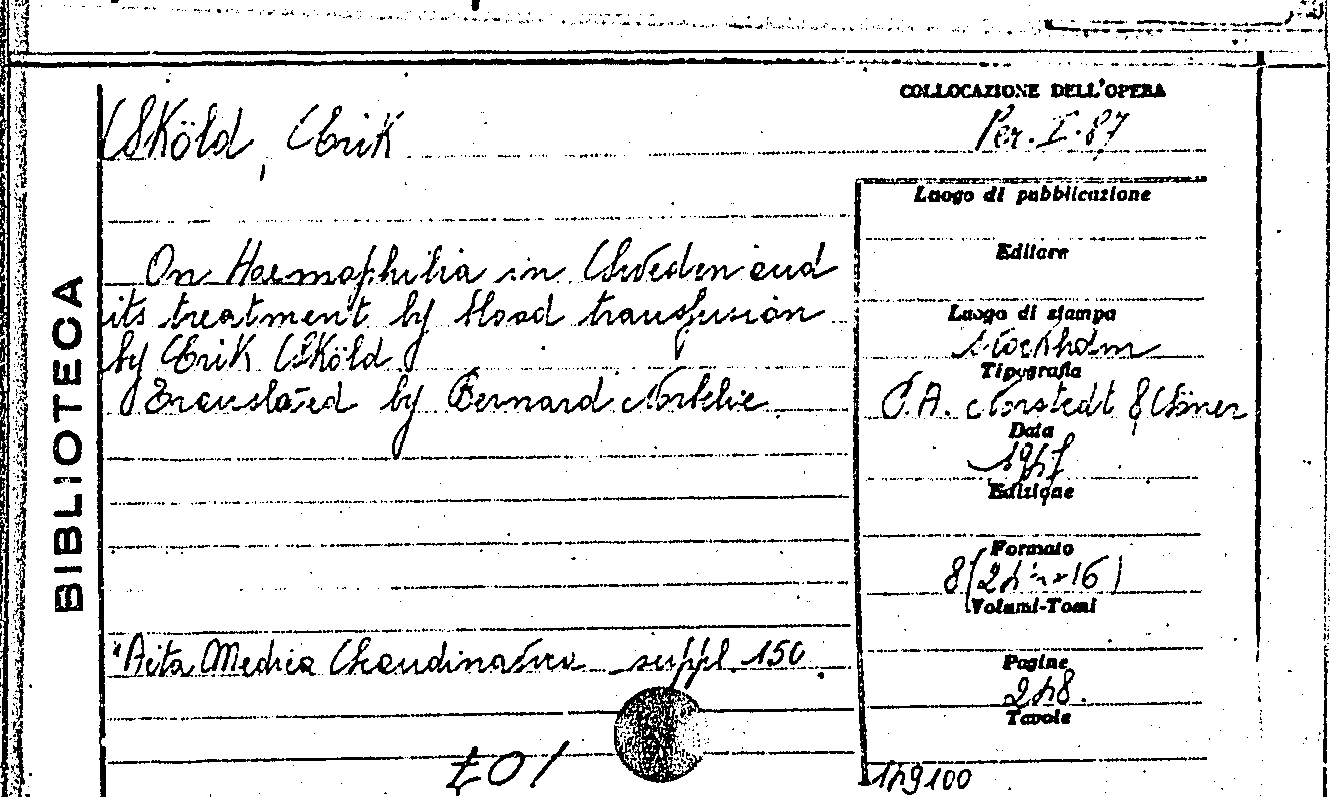 BIBLIOTECA
COLLOCAZIONE DELL'OPERA
Per. I. 87
Sköld, Erik
Luogo di pubblicazione
Editore
On Haemophilia in Sweden and
its treatment by blood transfusion
by Erik Sköld
Translated by Bernard
Luogo di stampa
Stockholm
Tipografia
P.A. Norstedt & Söner
Data
Edizione
Formato
8
Volumi-Tomi
"Acta Medica Scandinavica suppl. 150
Pagine
248.
Tavole
149100